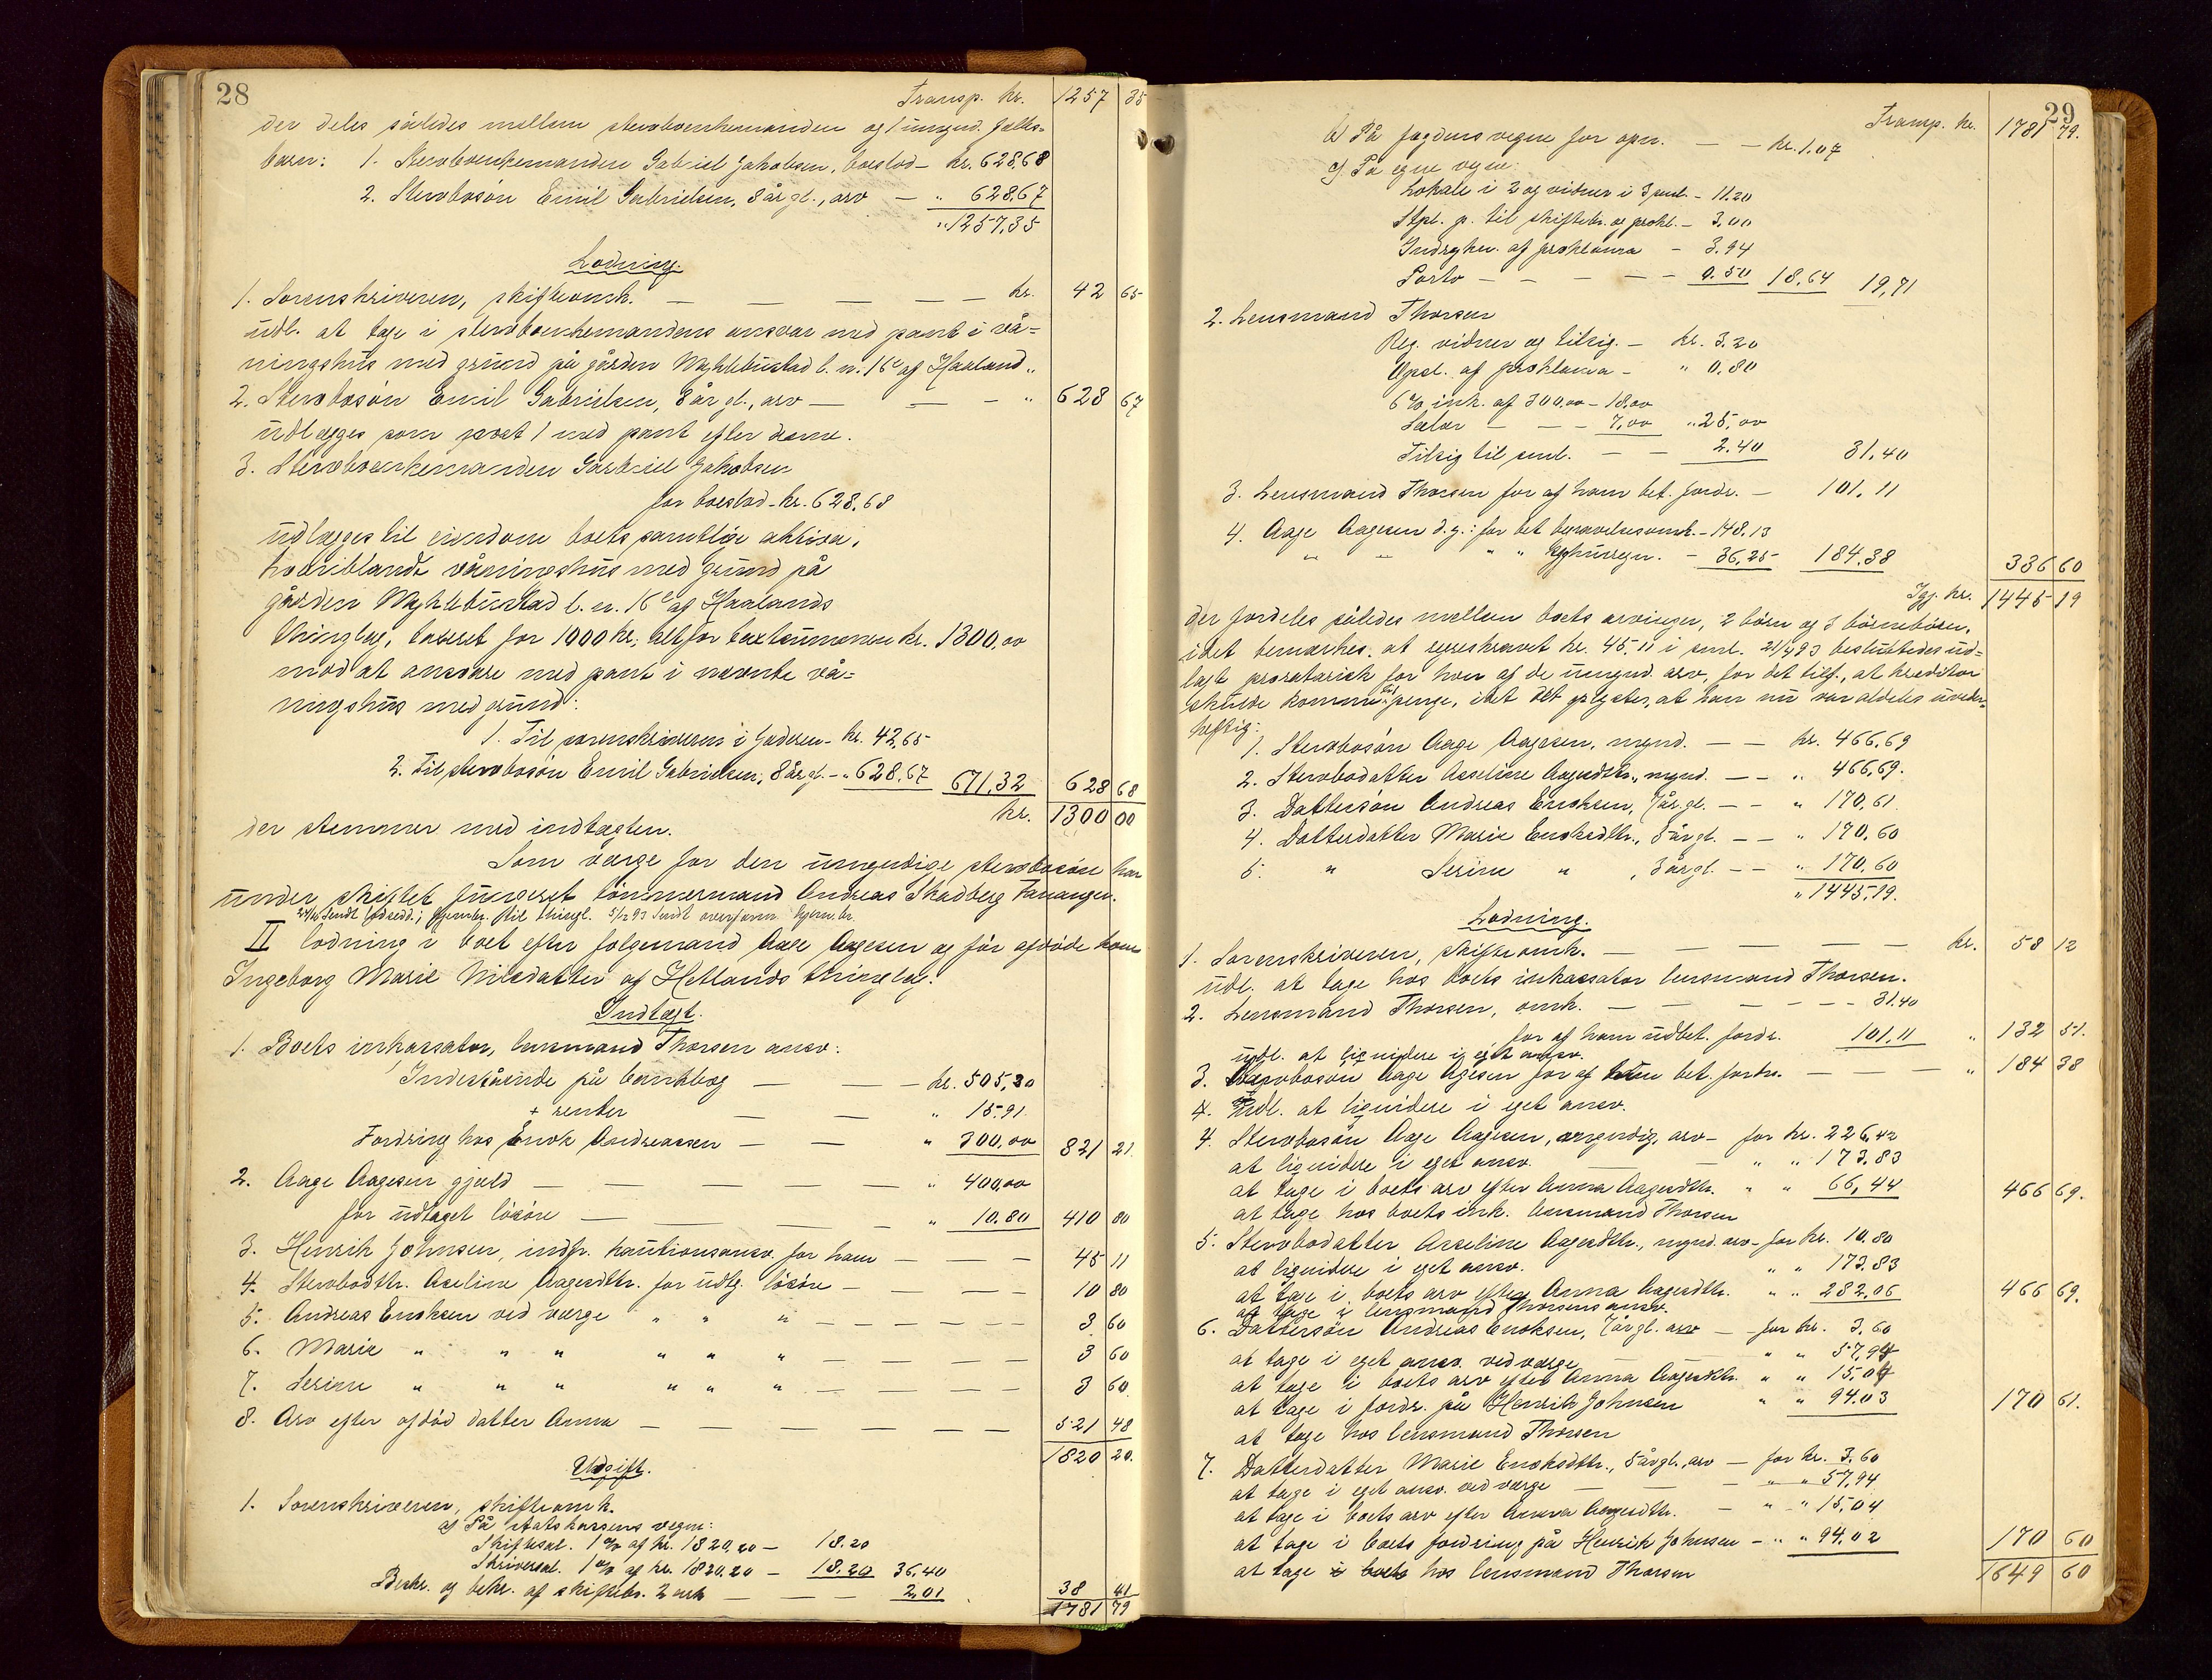 28
Transp. kr. 1257 35
der deles således mellem stervboenkemanden og 1 umynd. fælles-
barn: 1. Stervboenkemanden Gabriel Jakobsen, boeslod - kr. 628,68
2. Stervbosön Emil Gabrielsen, 8 år gl., arv — " 628,67
" 1257,35
Lodning.
1. Sorenskriveren, skifteomk. — — — — — kr. 42 65
udl. at tage i stervboenkemandens ansvar med pant i vå-
ningshus med grund på gården Myklebustad l. n. 16c af Haaland "
2. Stervbosön Emil Gabrielsen, 8 år gl., arv — — - " 628 67
udlægges som post 1 med pant efter denne.
3. Stervboenkemanden Gabriel Jakobsen
for boeslod - kr. 628,68
udlægges til eiendom boets samtlige aktiva,
hvoriblandt våningshus med grund på
gården Myklebustad l. n. 16c af Haalands
thinglag, taxeret for 1000 kr.; alt for taxtsummen kr. 1300,00
mod at ansvare med pant i nævnte vå-
ningshus med grund:
1. Til sorenskriveren i Jæderen - kr. 42,65
2. Til stervbosön Emil Gabrielsen, 8 år gl. - " 628,67 671,32 628 68
kr. 1300 00
der stemmer med indtægten.
Som værge for den umyndige stervbosön har
under skiftet fungeret tömmermand Andreas Skadberg Tananger.
II lodning i boet efter folgemand Aage Aagesen og för afdöde kone
Ingeborg Marie Nilsdatter af Hetlands thinglag.
Indtægt.
1. Boets inkassator, lensmand Thorsen ansv:
Indestående på bankbog — — — kr. 505,30
+ renter — — " 15.91
Fordring hos Enok Andreassen — — " 300,00 821 21.
2. Aage Aagesen gjæld — — — — — " 400,00
for udtaget lösöre — — — — " 10.80 410 80
3. Henrik Johnsen, indfr. kautionsansv. for ham — — — 45 11
4. Stervbodtr. Aseline Aagesdtr. for udtg. lösöre — — — — 10 80
5. Andreas Enoksen ved værge " " " — — — — — 3 60
6. Marie " " " " " " — — — — — 3 60
7. Serine " " " " " " — — — — — 3 60
8. Arv efter afdöd datter Anna — — — — — — 521 48
1820 20.
Udgift.
1. Sorenskriveren, skifteomk.
a) På statskassens vegne:
Skiftesal. 1% af kr. 1820,20 - 18.20
Skriversal. 1% af kr. 1820.20 - 18.20 36,40
Beskr. og bekr. af skiftebr. 2 ark — — — 2,01 38 41
1781 79
29
Transp. kr. 1781 79.
b) På fogdens vegne for opn. — — kr. 1.07
c) På egne vegne:
Lokale i 2 og vidner i 3 saml. - 11.20
Stpl. p. til skiftebr. og prokl. - 3,00
Indrykn. af proklama - 3.94
Porto - - - - - 0.50 18,64 19,71
2. Lensmand Thorsen
Reg. vidner og tilsig. - kr. 3.20
Opsl. af proklama - " 0,80
6% ink. af 300,00 - 18,00
Salær - - - 7,00 " 25,00
Tilsig til saml. - - 2.40 31.40
3. Lensmand Thorsen for af ham bet. fordr. - 101.11
4. Aage Aagesen d.y.: for bet begravelsesomk. - 148.13
" " " " - 36,25 184.38 336 60
Igj. kr. 1445 19
der fordeles således mellem boets arvinger, 2 börn og 3 börnebörn,
idet bemærkes, at regreskravet kr. 45.11 i saml. 21/4 93 besluttedes ud-
lagt proratarisk for hver af de umynd. arv, for det tilf., at kreditor
skulde komme til penge, idet det oplystes, at han nu var aldeles uveder-
heftig:
1. Stervbosön Aage Aagesen, mynd. — — kr. 466,69
2. Stervbodatter Asseline Aagesdtr., mynd. — — " 466,69.
3. Dattersön Andreas Enoksen, 7 år gl. — — " 170,61
4. Datterdatter Marie Enoksdtr., 5 år gl. — — " 170,60
5. " Serine " , 3 år gl. — — " 170,60
" 1445,19.
Lodning.
1. Sorenskriveren, skifteomk. — — — — kr. 58 12
udl. at tage hos boets inkassator lensmand Thorsen.
2. Lensmand Thorsen, omk. — — — - - - 31.40
for af ham udbet. fordr. 101,11 " 132 51.
udl. at liquidere i eget ansv.
3. Stervbosön Aage Agesen for af ham bet. fordr. — — — " 184 38
udl. at liquidere i eget ansv.
4. Stervbosön Aage Aagesen, myndig, arv - for kr. 226,42
at liquidere i eget ansv. — — " " 173.83
at tage i boets arv efter Anna Aagesdtr. " " 66,44 466 69.
at tage hos boets ink. lensmand Thorsen
5. Stervbodatter Asseline Aagesdtr., mynd. arv - for kr. 10.80
at liquidere i eget ansv. " " 173.83
at tage i boets arv efter Anna Aagesdtr. " " 282.06 466 69.
at tage i lensmand Thorsens ansv.
6. Dattersön Andreas Enoksen, 7 år gl. arv — for kr. 3.60
at tage i eget ansv. ved værge — " " 57,94
at tage i boets arv efter Anna Aagesdtr. " " 15,04
at tage i fordr. på Henrik Johnsen " " 94.03 170 61.
at tage hos lensmand Thorsen
7. Datterdatter Marie Enoksdtr., 5 år gl., arv — for kr. 3.60
at tage i eget ansv. ved værge — — - " " 57,94
at tage i boets arv efter Anna Aagesdtr. - " " 15,04
at tage i boets fordring på Henrik Johnsen - " " 94.02 170 60
at tage hos lensmand Thorsen 1649 60